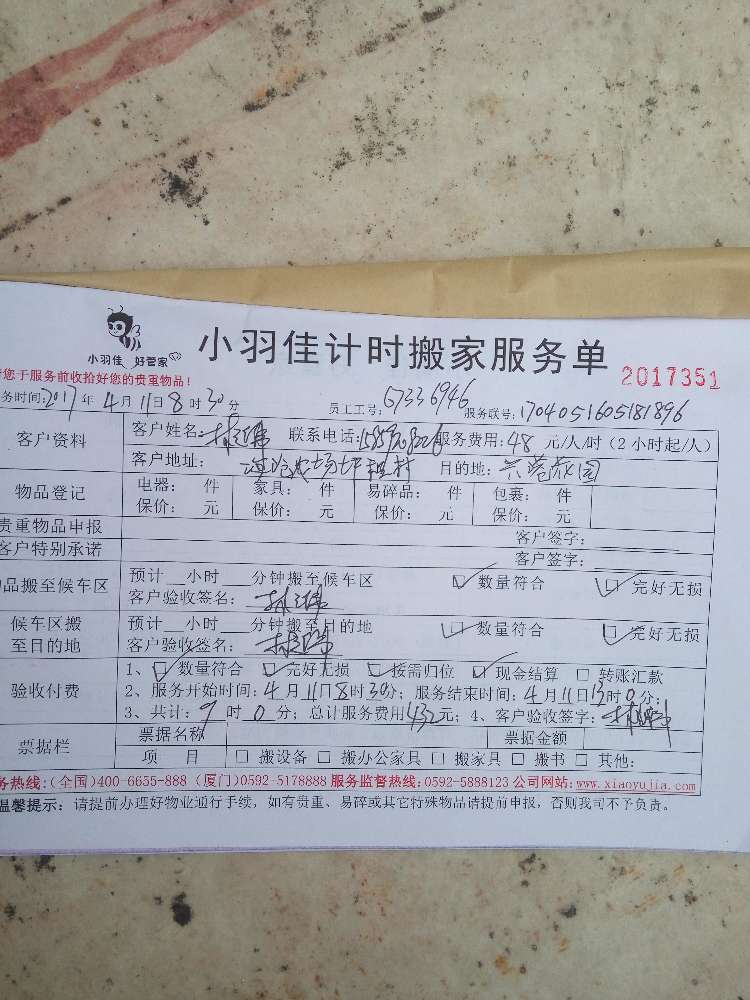 小羽佳 好管家
小羽佳计时搬家服务单
2017351
您于服务前收拾好您的贵重物品!
务时间:2017年4月11日8时30分 员工工号:67336946 服务联号:1704051605181896
客户资料 客户姓名: 联系电话: 服务费用:48元/人/时(2小时起/人)
客户地址: 目的地:
物品登记 电器: 件 家具: 件 易碎品: 件 包裹: 件
保价: 元 保价: 元 保价: 元 保价: 元
贵重物品申报 客户签字:
客户特别承诺 客户签字:
品搬至候车区 预计__小时__分钟搬至候车区 ☑数量符合 ☑完好无损
客户验收签名:
候车区搬至目的地 预计__小时__分钟搬至目的地 ☑数量符合 ☑完好无损
客户验收签名:
验收付费 1、☑数量符合 ☑完好无损 ☑按需归位 ☑现金结算 □转账汇款
2、服务开始时间:4月11日8时30分;服务结束时间:4月11日13时0分;
3、共计:9时0分;总计服务费用432元;4、客户验收签字:
票据栏 票据名称 票据金额
项 目 □搬设备 □搬办公家具 □搬家具 □搬书 □其他:
务热线:(全国)400-6655-888 (厦门)0592-5178888 服务监督热线:0592-5888123 公司网站:www.xiaoyujia.com
温馨提示:请提前办理好物业通行手续,如有贵重、易碎或其它特殊物品请提前申报,否则我司不予负责。